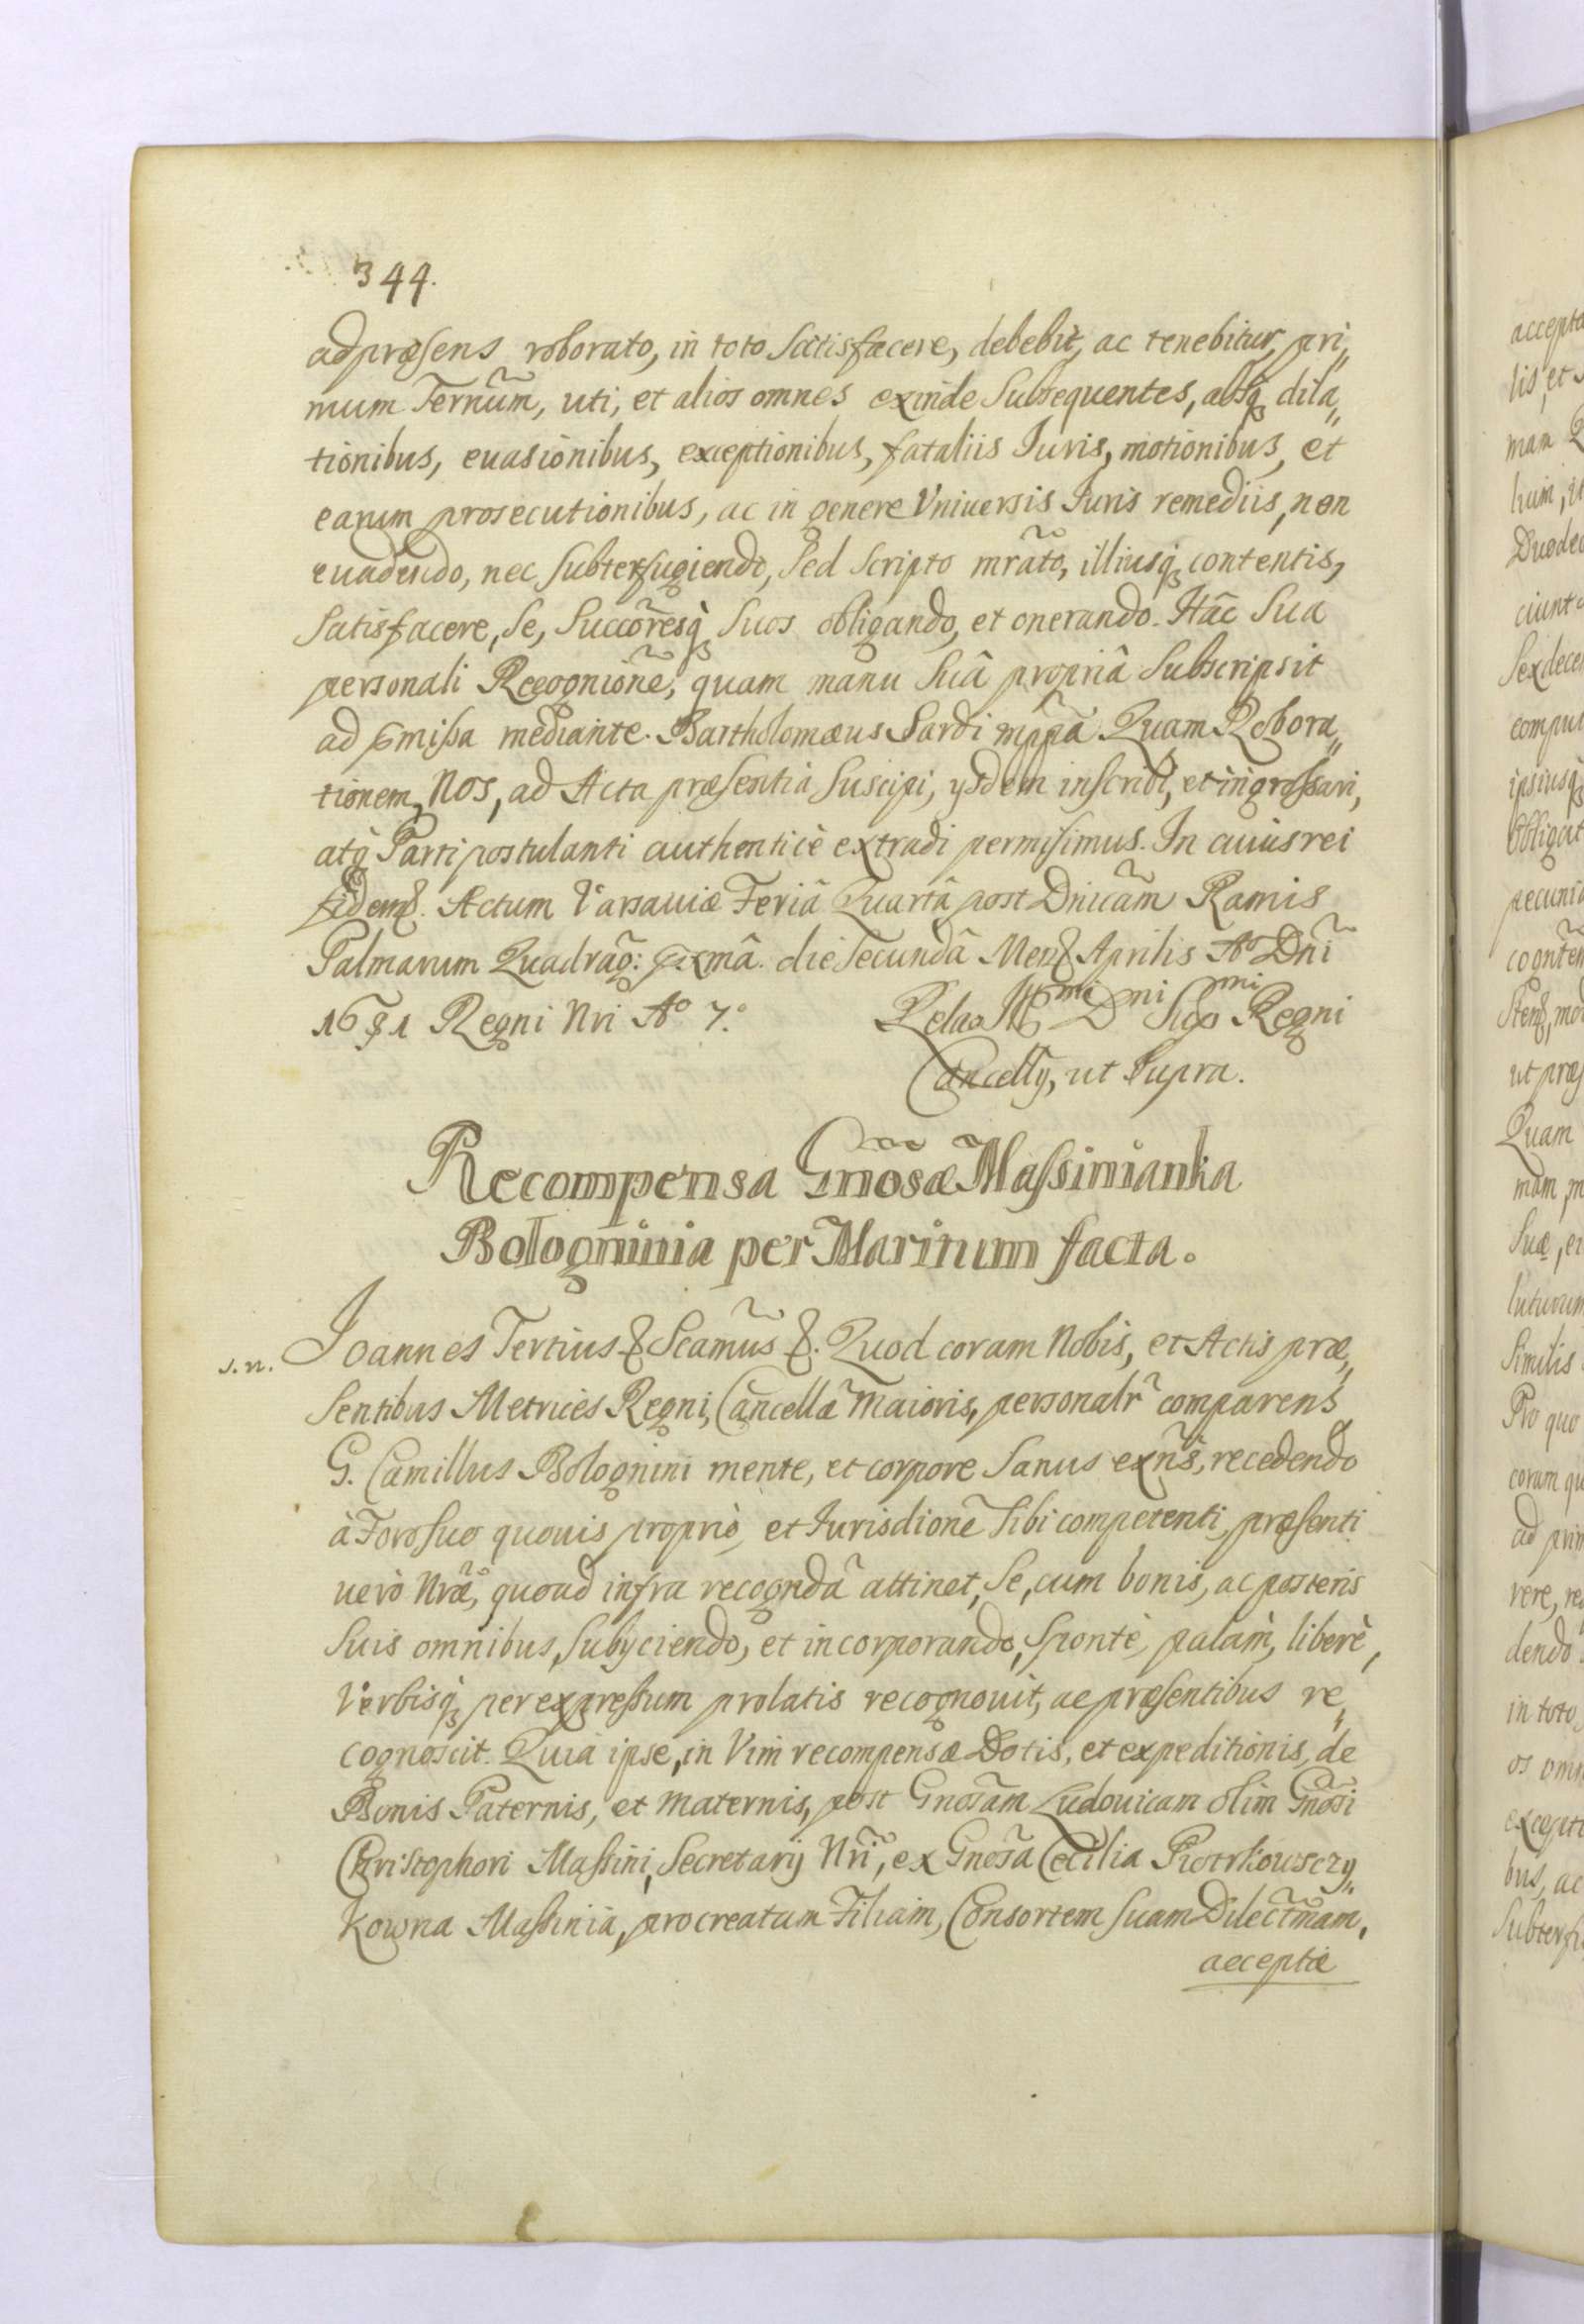 344.
ad præsens roborato, in toto Satisfacere, debebit, ac tenebitur, pri„
mum Ternũm, uti, et alios omnes exinde Subsequentes, absq; dila„
tionibus, euasionibus, exceptionibus, fataliis Iuris, motionibus, et
earum prosecutionibus, ac in genere Vniuersis Iuris remediis, non
euadendo, nec Subterfugiendo, Sed Scripto mrãto, illiusq; contentis,
Satisfacere, Se, Succõresq; Suos obligando, et onerando. Hâc Sua
personali Recognionẽ, quam manu Suâ propriâ Subscripsit
ad pmissa mediante. Bartholomæus Sardi mppã. Quam Robora„
tionem, Nos, ad Acta præsentia Suscipi, ysdem inscribi, et ingrossari,
atq; Parti postulanti authenticè extradi permisimus. In cuius rei
fidem &. Actum Varsauiæ Feriâ Quartâ post Dnicãm Ramis
Palmarum Quadrãg: pxmâ. die Secundâ Mens Aprilis Aº Dnĩ
1681 Regni Nri Aº 7.º
Relao Illmi Dni Supmi Regni
Cancellÿ, ut Supra.
Recompensa Gnõsæ Massinianka
Bologninia per Maritum facta.
J. n. Joannes Tertius & Scamũs &. Quod coram Nobis, et Actis præ„
Sentibus Metrices Regni, Cãncellæ Maioris, personalr̃ comparens
G. Camillus Bolognini mente, et corpore Sanus exñs, recedendo
à Foro Suo quouis propriò, et Iurisdionẽ Sibi competenti, præsenti
uerò Nræ̃, quoad infra recogndã attinet, Se, cum bonis, ac posteris
Suis omnibus, Subyciendo, et incorporando, Spontè, palàm, liberè,
Verbisq; per expressum prolatis recognouit, ac præsentibus re„
cognoscit. Quia ipse, in Vim recompensæ Dotis, et expeditionis, de
Bonis Paternis, et maternis, post Gnosãm Ludouicam olim Gnõsi
Christophori Massini, Secretarij Nrĩ, ex Gnosã Cecilia Piotrkowsczy„
kowna Massinia, procreatam Filiam, Consortem Suam Dilectm̃am,
acceptæ